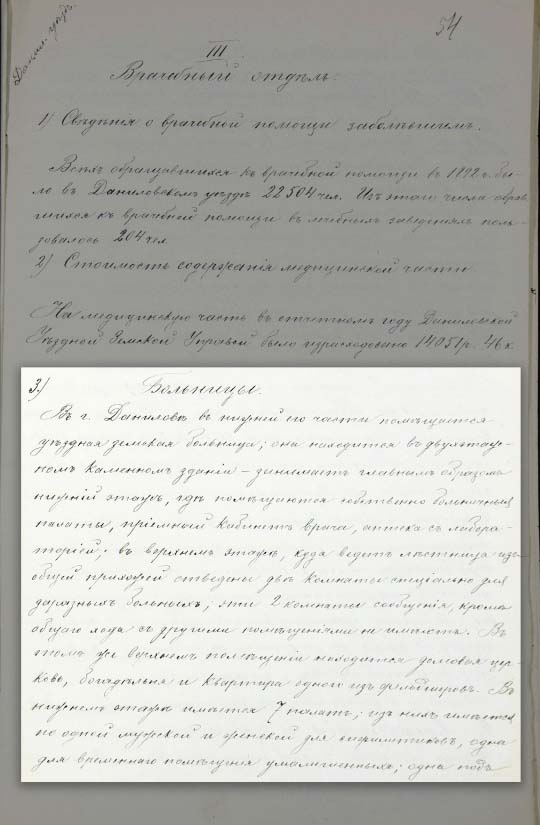 Данил. уѣздъ.
54
III.
Врачебный отдѣлъ.
1) Свѣдѣнія о врачебной помощи заболѣвшимъ.
Всѣхъ обращавшихся къ врачебной помощи въ 1892 г. бы-
ло въ Даниловскомъ уѣздѣ 22504 чел. Изъ этого числа обрат-
шихся къ врачебной помощи въ лечебныхъ заведеніяхъ поль-
зовалось 204 чел.
2) Стоимость содержанія медицинской части
На медицинскую часть въ отчетномъ году Даниловской
Уѣздной Земской Управой было израсходовано 14051 р. 46 к.
3.) Больницы.
Въ г. Даниловѣ въ нижней его части помѣщается
уѣздная земская больница; она находится въ двухэтаж-
номъ каменномъ зданіи – занимаетъ главнымъ образомъ
нижній этажъ, гдѣ помѣщаются собственно больничныя
палаты, пріемный кабинетъ врача, аптека съ лабора-
торіей; въ верхнемъ этажѣ, куда ведетъ лѣстница изъ
общей прихожей отведены двѣ комнаты спеціально для
заразныхъ больныхъ; эти 2 комнаты сообщенія, кромѣ
общаго хода съ другими помѣщеніями не имѣютъ. Въ
томъ же верхнемъ помѣщеніи находится домовая цер-
ковь, богадѣльня и квартира одной изъ фельдшеровъ. Въ
нижнемъ этажѣ имѣется 7 палатъ; изъ нихъ имѣется
по одной мужской и женской для сифилитиковъ, одна
для временнаго помѣщенія умалишенныхъ; одна подъ